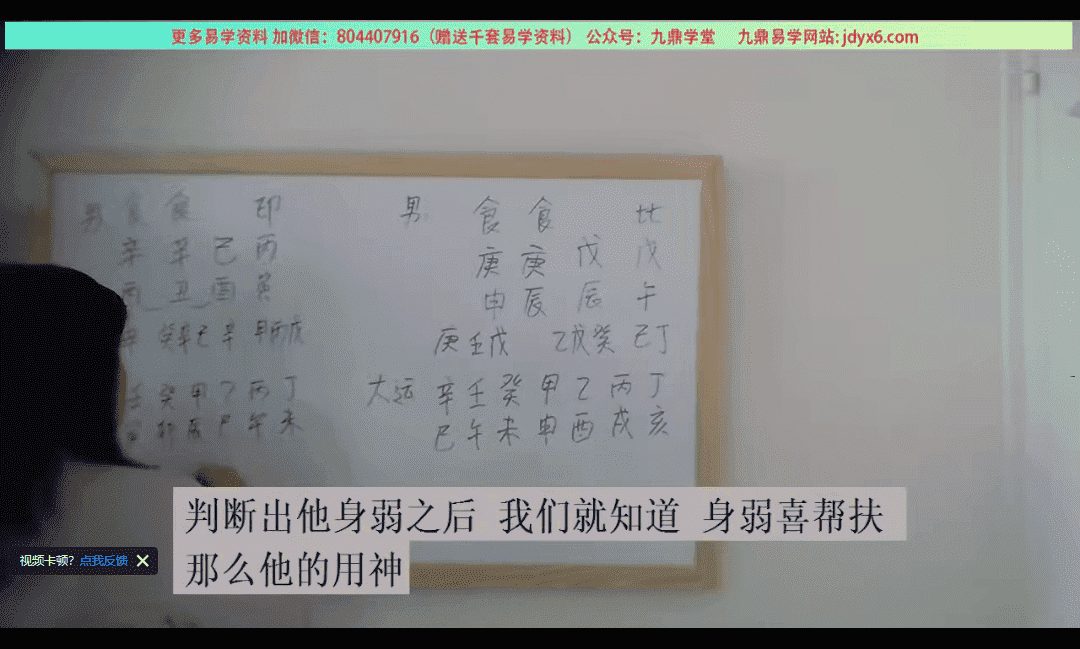 更多易学资料 加微信：804407916（赠送千套易学资料） 公众号：九鼎学堂 九鼎易学网站:jdyx6.com
男 食 食 印
辛 辛 己 丙
酉 丑 酉 寅
辛 癸辛己 辛 甲丙戊
壬 癸 甲 乙 丙 丁
卯 辰 巳 午 未
男 食 食 比
庚 庚 戊 戊
申 辰 辰 午
庚壬戊 乙戊癸 己丁
大运 辛 壬 癸 甲 乙 丙 丁
巳 午 未 申 酉 戌 亥
判断出他身弱之后 我们就知道 身弱喜帮扶
那么他的用神
视频卡顿？点我反馈